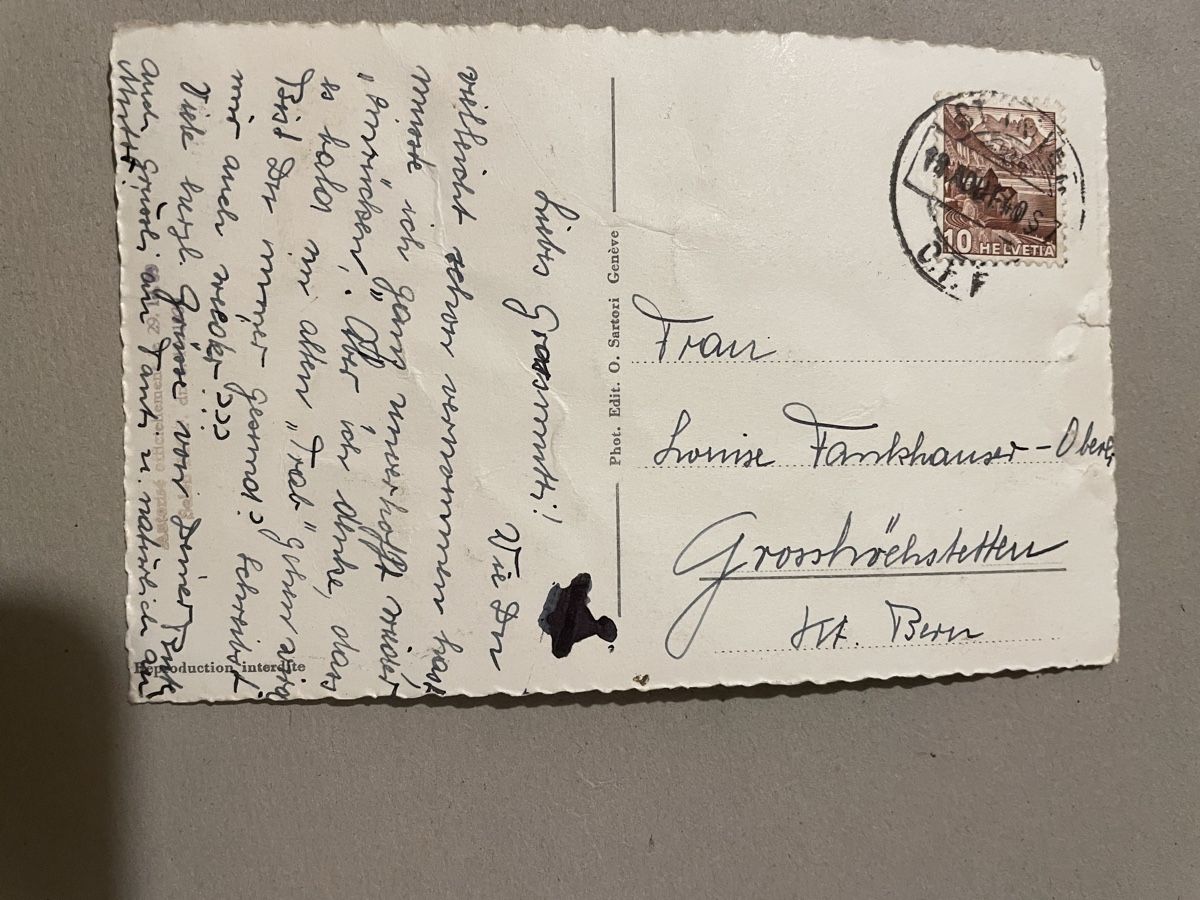 Liebs Grossmutti!
Wie Du
vielleicht schon vernommen hast
musste ich ganz unverhofft wieder
„einrücken". Aber ich denke, dass
es bald im alten „Trab" gehen wird
Bist Du immer gesund? Schreibst
mir auch wieder???
Viele herzl. Grüsse von Deiner
auch Grüssli an Tant. u. natürlich an
Mutti!
Autorisé 29.
Reproduction interdite
Phot. Edit. O. Sartori Genève
10 HELVETIA
Frau
Louise Fankhauser-Oberli
Grosshöchstetten
Kt. Bern